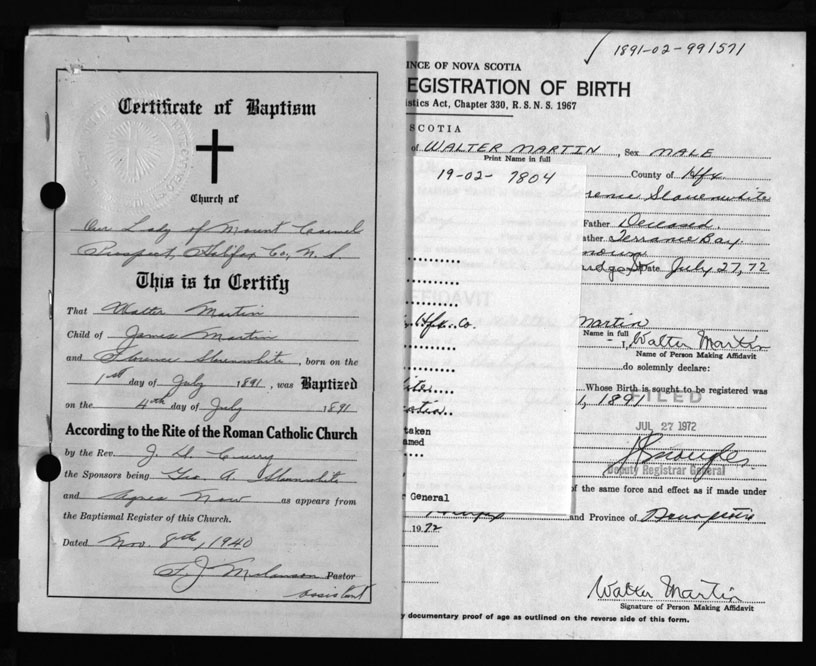 Certificate of Baptism
Church of
Our Lady of Mount Carmel
Prospect, Halifax Co, N.S.
This is to Certify
That Walter Martin
Child of James Martin
and Florence Slaunwhite, born on the
1st day of July 1891, was Baptized
on the 4th day of July 1891
According to the Rite of the Roman Catholic Church
by the Rev. J. D. Curry
the Sponsors being Geo. A. Slaunwhite
and Agnes as appears from
the Baptismal Register of this Church.
Dated Nov. 8th, 1940
Pastor
assistant
1891-02-991571
INCE OF NOVA SCOTIA
EGISTRATION OF BIRTH
istics Act, Chapter 330, R.S.N.S. 1967
SCOTIA
of WALTER MARTIN, Sex MALE
Print Name in full
19-02- 7804
County of Hfx.
rence Slauenwhite
Father Deceased.
ather Terrance Bay.
nown
Date July 27, 72
AFFIDAVIT
Hfx. Co.
Martin
Name in full
I, Walter Martin
Name of Person Making Affidavit
do solemnly declare:
Whose Birth is sought to be registered was
1, 1891
FILED
JUL 27 1972
Deputy Registrar General
taken
amed
of the same force and effect as if made under
r General
and Province of Nova Scotia
1972
Walter Martin
Signature of Person Making Affidavit
y documentary proof of age as outlined on the reverse side of this form.